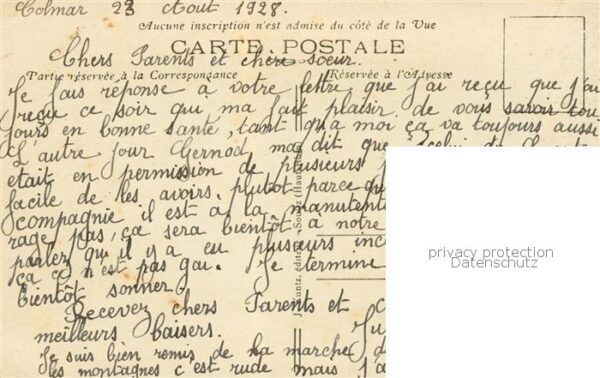 Colmar 23 Aout 1928.
Aucune inscription n'est admise du côté de la Vue
CARTE POSTALE
Chers Parents et chere soeur.
Partie réservée à la Correspondance
Réservée à l'Adresse
Je fais réponse a votre lettre que j'ai reçu que j'ai
reçu ce soir qui ma fait plaisir de vous savoir tou
jours en bonne santé, tant qu'a moi ça va toujours aussi
L'autre jour Gernod ma dit que
etait en permission de plusieurs
facile de les avoirs, plutot parce qu
compagnie il est à la manutent
rage pas, ça sera bientôt à notre
parlez qu'il y a eu plusieurs inc
ça ce n'est pas gai. Je termine
bientôt sonner.
Recevez chers Parents et
meilleurs baisers.
Ju
Je suis bien remis de la marche
les montagnes c'est rude mais j'a
privacy protection
Datenschutz